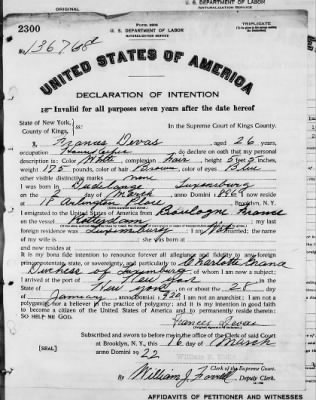 U. S. DEPARTMENT OF LABOR
NATURALIZATION SERVICE
ORIGINAL
TRIPLICATE
2300
U. S. DEPARTMENT OF LABOR
NATURALIZATION SERVICE
No. 136768
UNITED STATES OF AMERICA
DECLARATION OF INTENTION
Invalid for all purposes seven years after the date hereof
State of New York,
County of Kings,
ss:
In the Supreme Court of Kings County.
I, Frances Devas, aged 26 years,
occupation Housekeeper, do declare on oath that my personal
description is: Color White, complexion Fair, height 5 feet 3 inches,
weight 175 pounds, color of hair Brown, color of eyes Blue
other visible distinctive marks none
I was born in Dudelange Luxemburg
on the day of March, anno Domini 1896; I now reside
at 18 Arlington Place, Brooklyn, N. Y.
I emigrated to the United States of America from Boulogne France
on the vessel Rotterdam; my last
foreign residence was Luxemburg; I am not married; the name
of my wife is ; she was born at
and now resides at
It is my bona fide intention to renounce forever all allegiance and fidelity to any foreign
prince, potentate, state, or sovereignty, and particularly to Charlotte Grand
Duchess of Luxemburg, of whom I am now a subject;
I arrived at the port of New York, in the
State of New York, on or about the 28 day
of January, anno Domini 1920; I am not an anarchist; I am not a
polygamist nor a believer in the practice of polygamy; and it is my intention in good faith
to become a citizen of the United States of America and to permanently reside therein:
SO HELP ME GOD.
Frances Devas
Subscribed and sworn to before me in the office of the Clerk of said Court
at Brooklyn, N. Y., this 16 day of March
anno Domini 1922
Clerk of the Supreme Court.
By William J. , Deputy Clerk.
AFFIDAVITS OF PETITIONER AND WITNESSES